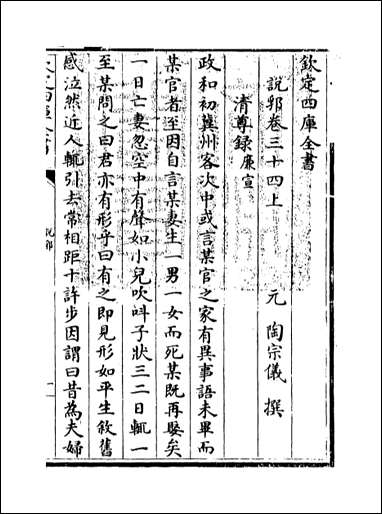 欽定四庫全書
說郛卷三十四上
元 陶宗儀 撰
清尊録 廉宣
政和初冀州客次中或言某官之家有異事語未畢而
某官者至因自言某妻生一男一女而死某既再娶矣
一日亡妻忽空中有聲如小兒吹呌子狀三二日輒一
至某問之曰君亦有形乎曰有之即見形如平生敘舊
感泣然近人輒引去常相距十許步因謂曰昔為夫婦
欽定四庫全書
說郛
一